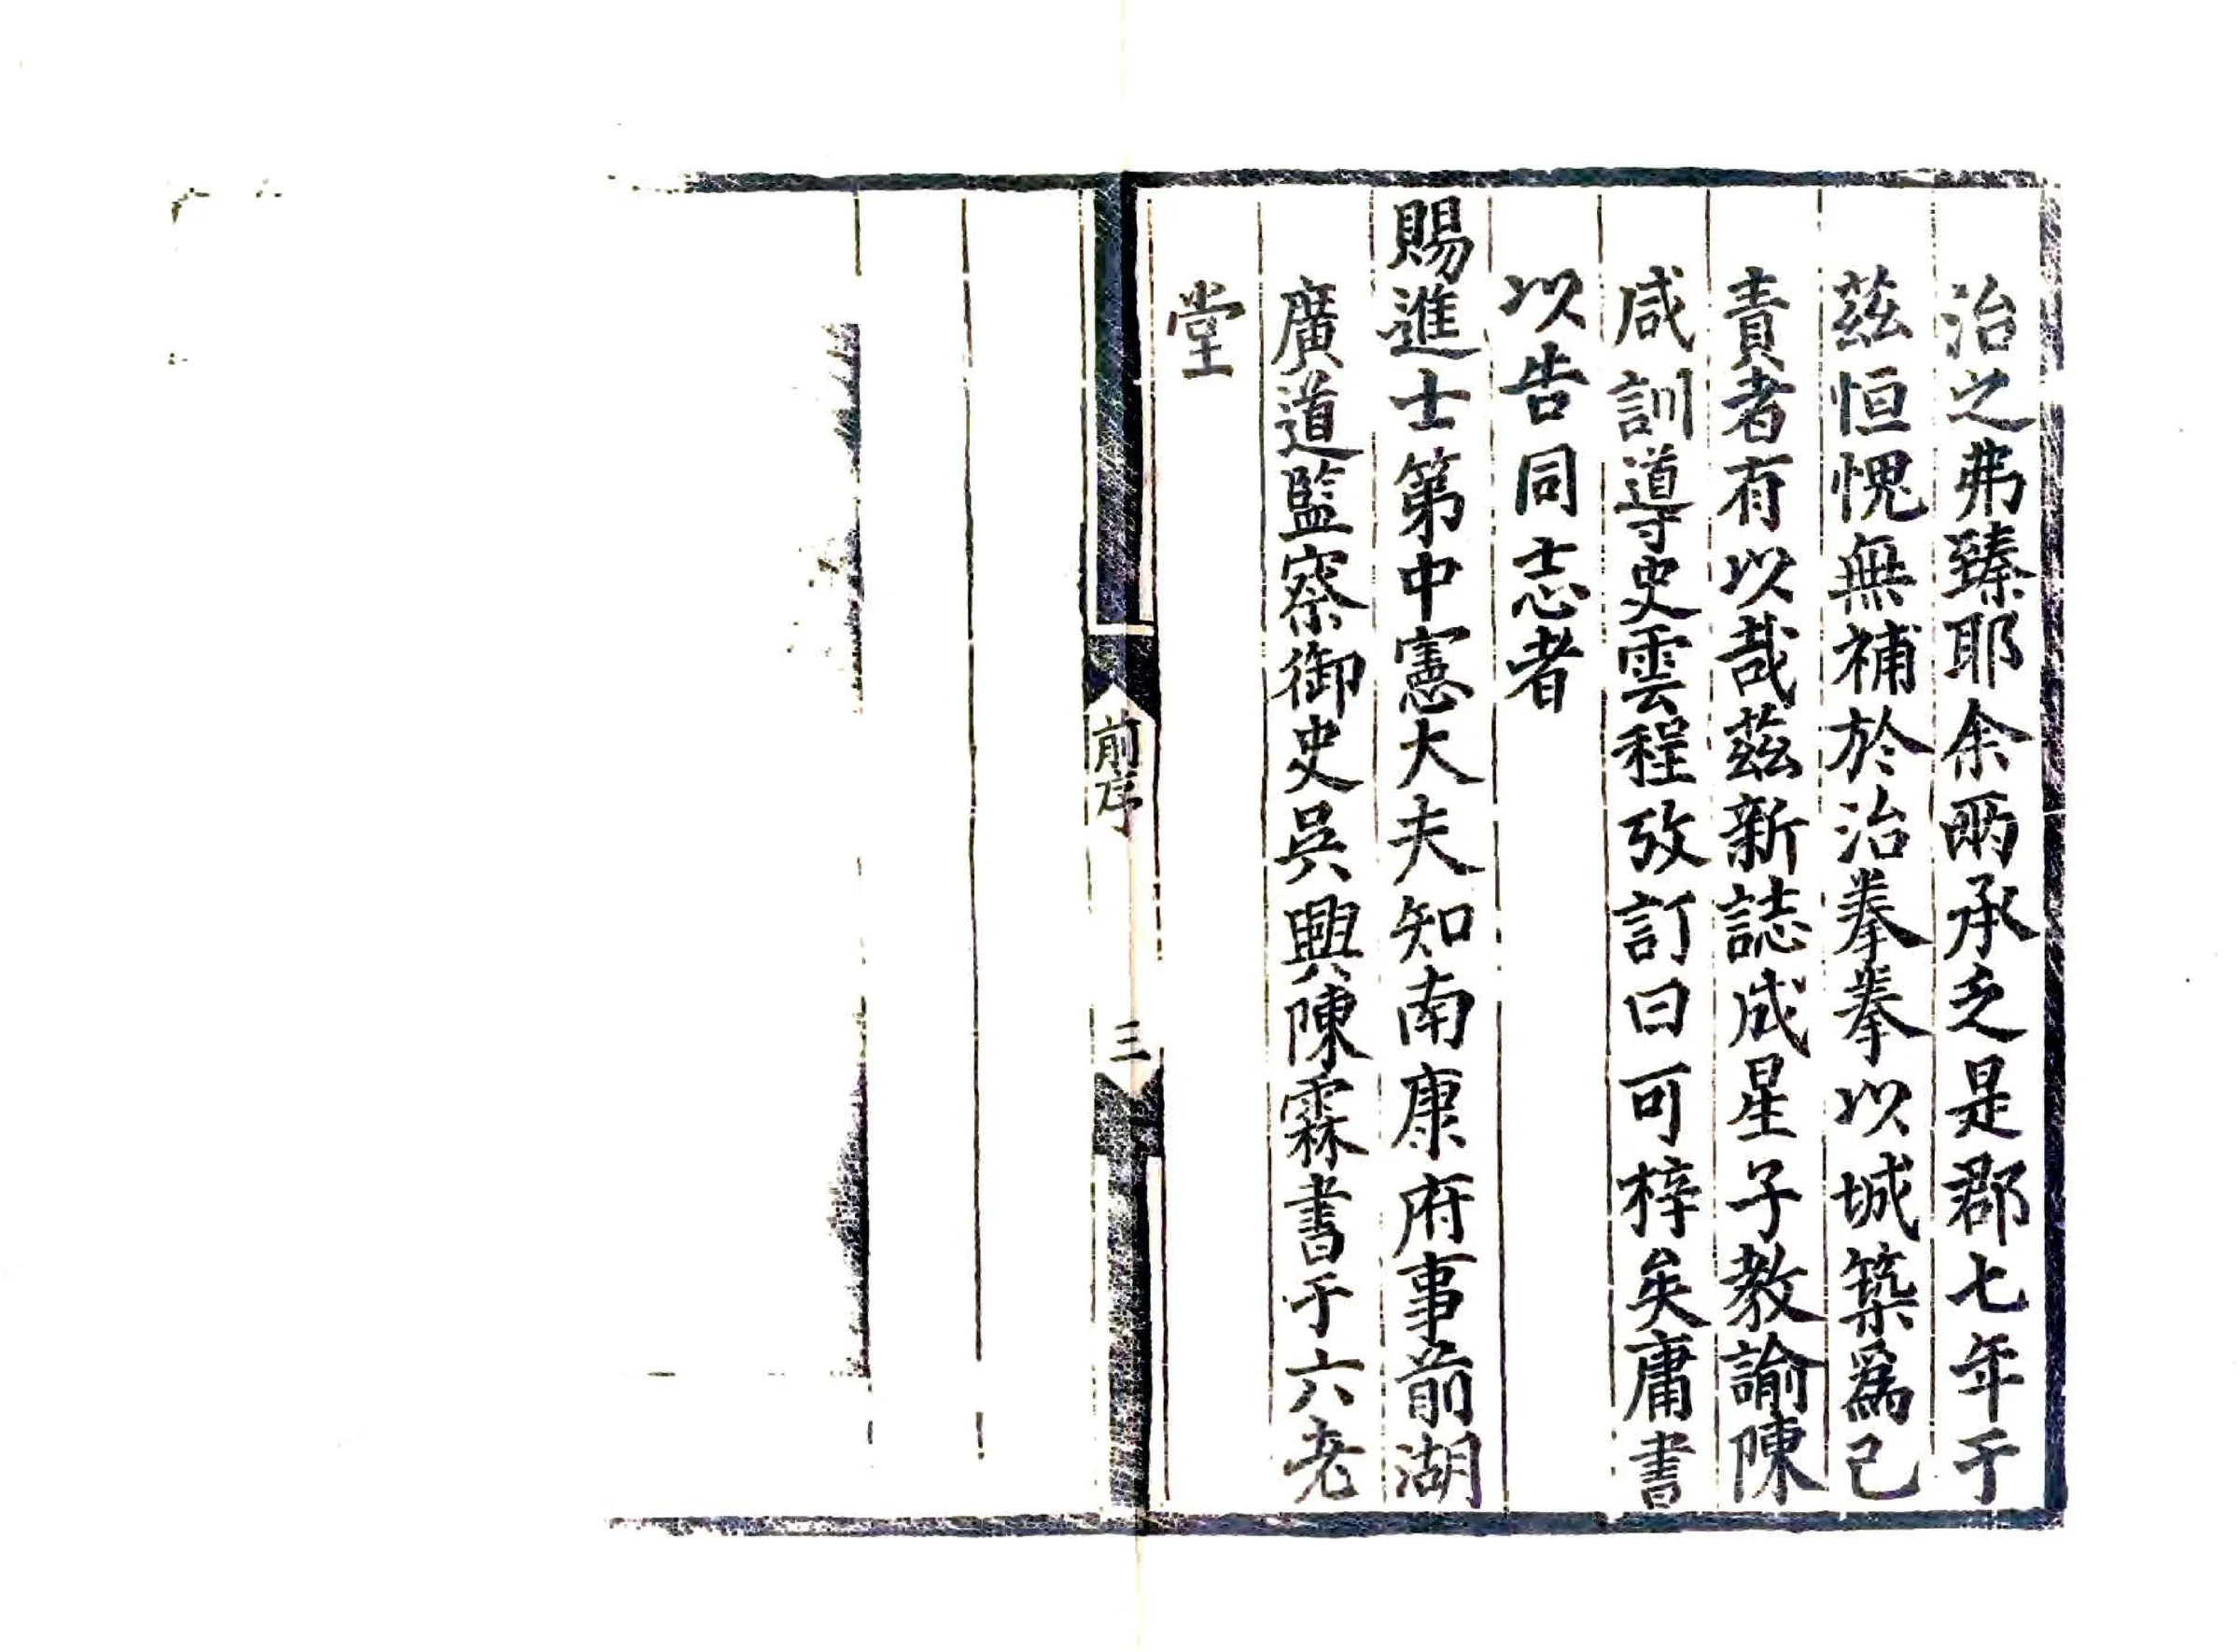 治之弗臻耶余兩承乏是郡七年于
茲恒愧無補於治拳拳以城築爲己
責者有以哉茲新誌成星子教諭陳
咸訓導史雲程攷訂曰可梓矣庸書
以告同志者
賜進士第中憲大夫知南康府事前湖
廣道監察御史吳興陳霖書于六老
堂
前序
三